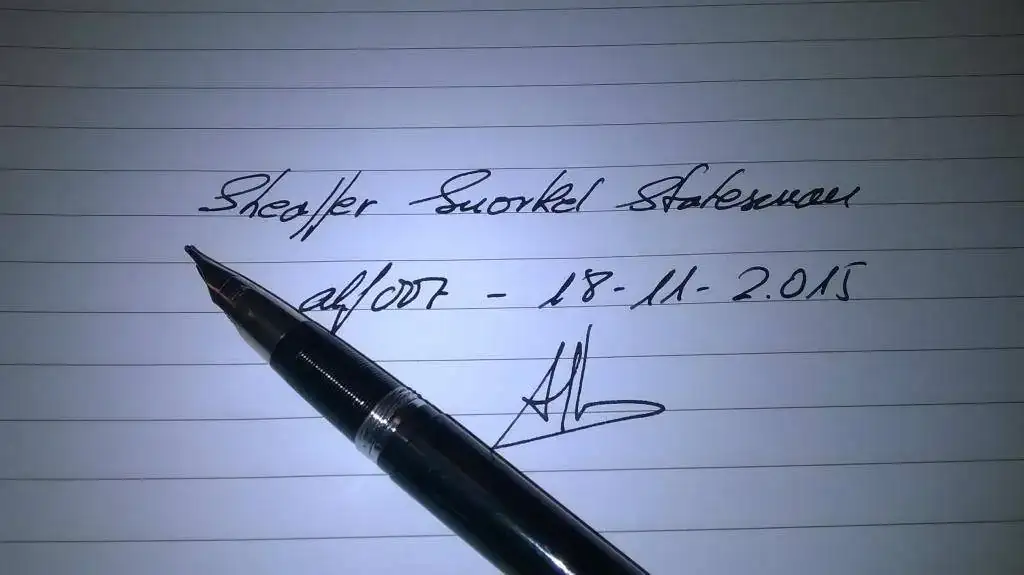 Sheaffer Snorkel Statesman
alf/007 - 18-11-2.015